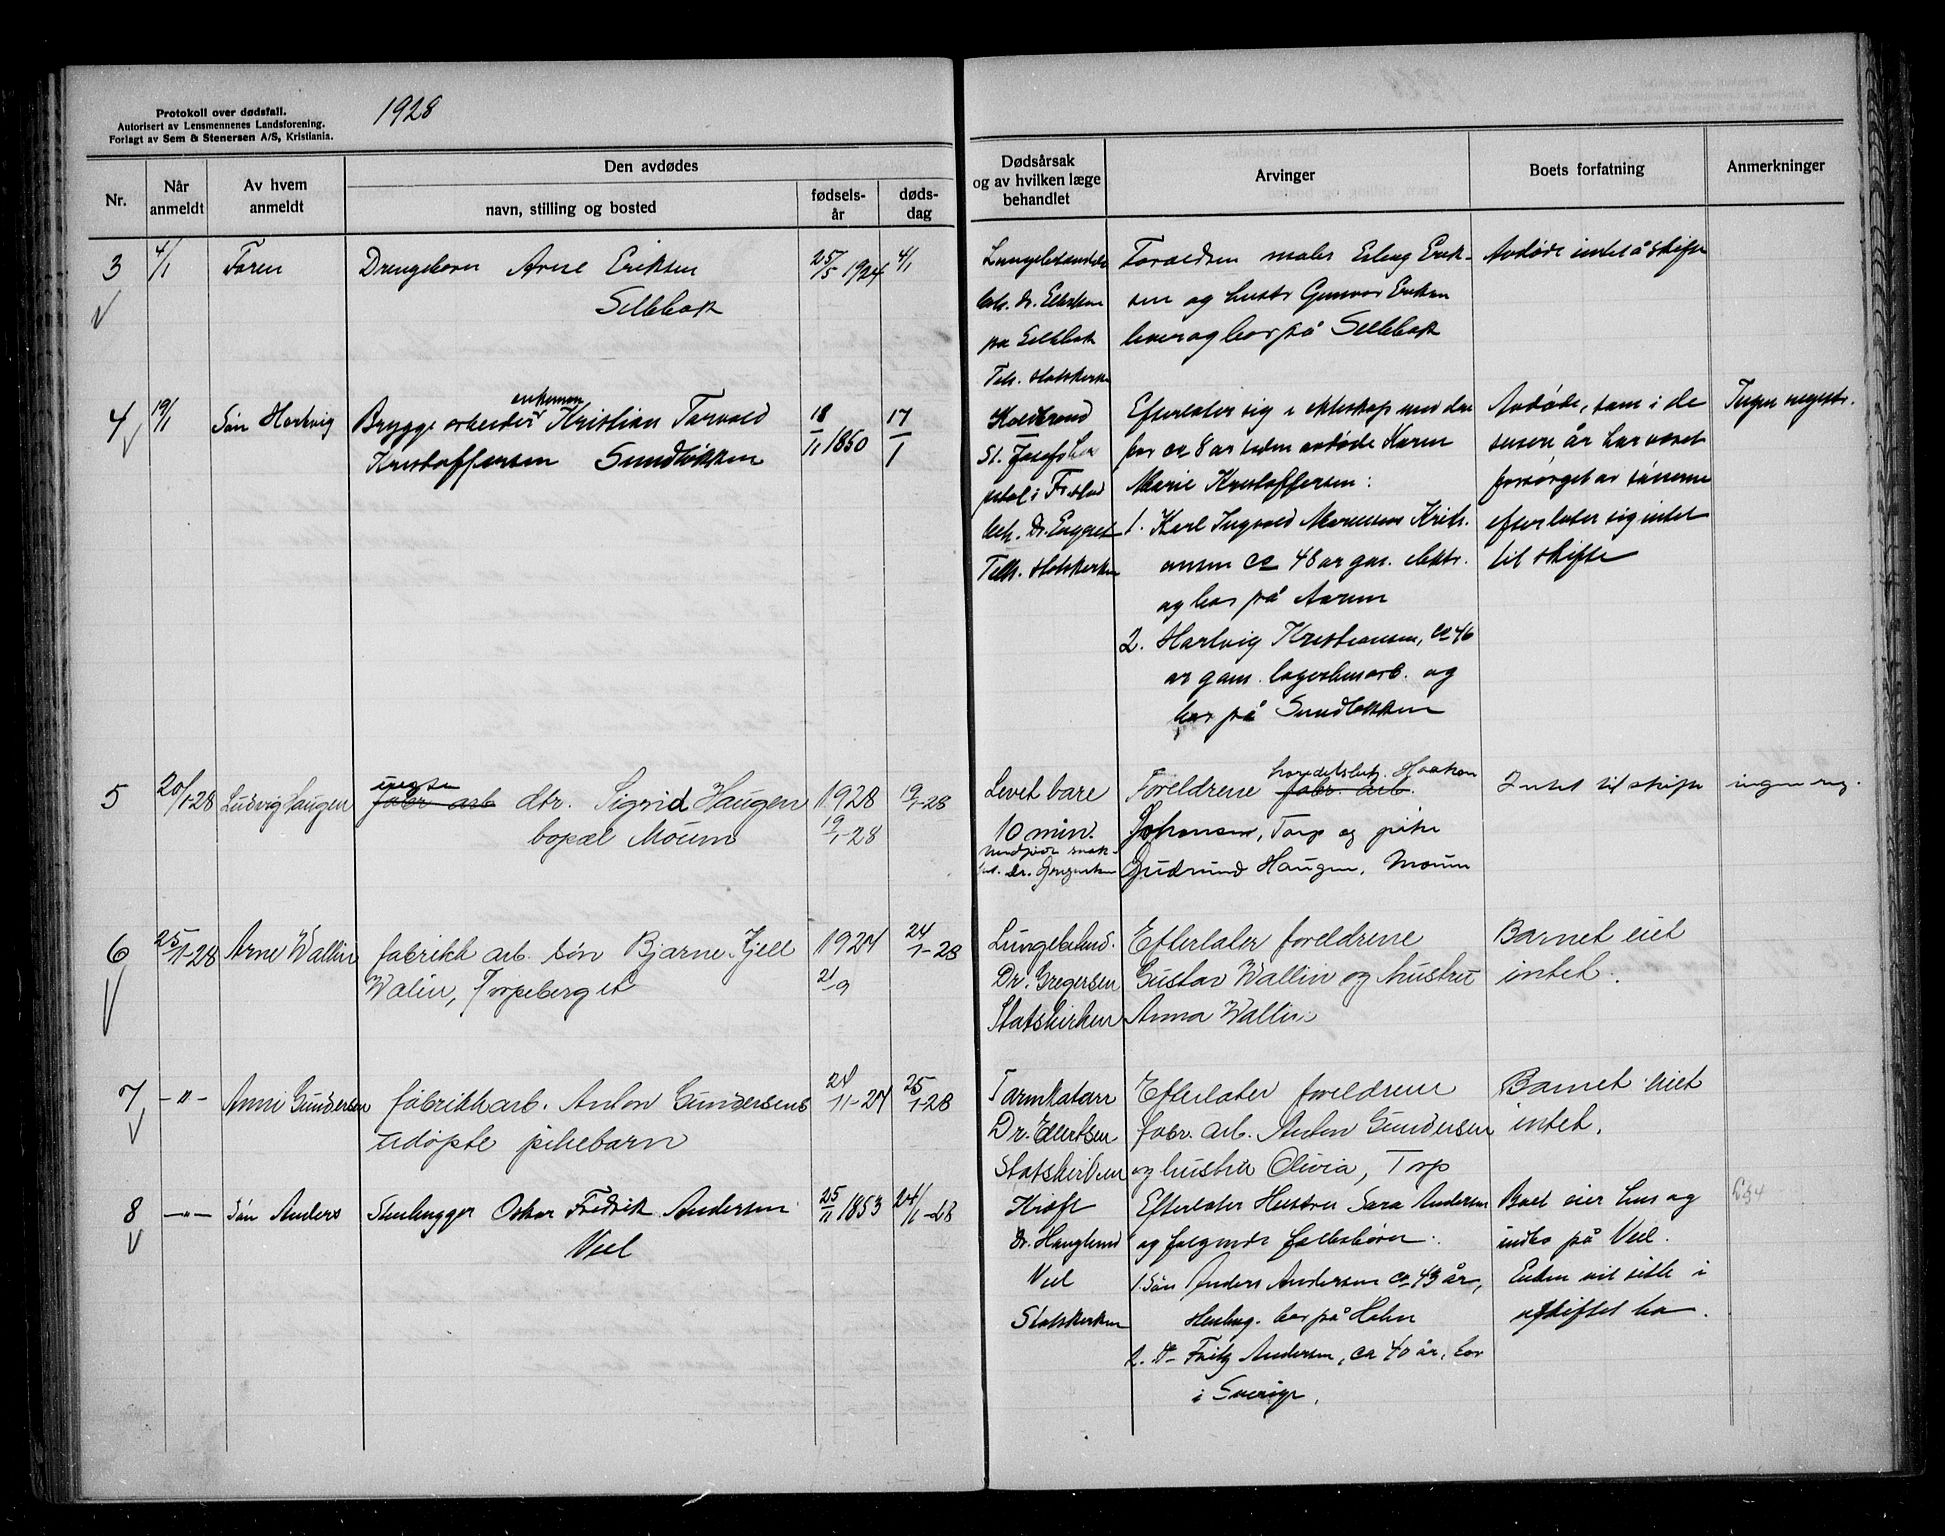 Protokoll over dødsfall.
Autorisert av Lensmennenes Landsforening.
Forlagt av Sem & Stenersen A/S, Kristiania.
1928
Nr.
Når anmeldt
Av hvem anmeldt
Den avdødes
navn, stilling og bosted
fødsels-år
døds-dag
Dødsårsak og av hvilken læge behandlet
Arvinger
Boets forfatning
Anmerkninger
3
4/1
Faren
Drengebarn Arne Eriksen
Sellebak
25/5 1924
4/1
på Sellebak
Foreldren maler Erling Erik-
sen og hustr Gunvor Eriksen
lever og bor på Sellebak
Avdøde intet å skifte
4
19/1
Søn Hartvig
enkeman
Brygge arbeider Kristian Torvald
Kristoffersen Sundløkken
18/11 1850
17/1
Koldbrand
St. Josefs hos
pital i Fr.stad
Tilh. statskirken
Efterlater sig i ekteskap med den
for ca 8 år siden avdøde Karen
Marie Kristoffersen:
1. Karl Ingvald Kristi-
ansen ca 48 år gar.
og bor på
2. Hartvig Kristiansen, ca 46
år gam. lagerhusarb. og
bor på Sundløkken
Avdøde, som i de
senere år har været
forsørget av sønnene
efterlater sig intet
til skifte
Ingen registr.
5
20/1-28
Ludvig Haugen
ugifte
fabr arb dtr. Sigrid Haugen
bopæl Moum
1928
19/1-28
19/1-28
Levet bare
10 min.
Foreldrene fabr. arb. Haakon
Johansen, Torp og pike
Gudrund Haugen, Moum
Intet til skifte
ingen reg.
6
25/1-28
Arne Wallin
fabrikk arb. søn Bjarne Kjell
Walin, Torpeberget
1927
21/9
24/1-28
Lungebetend.
Dr. Gregersen
Statskirken
Efterlater foreldrene
Gustav Wallin og hustru
Anna Wallin
Barnet eiet
intet.
7
-"-
Anni Gundersen
fabrikkarb. Anton Gundersens
udøpte pikebarn
24/11-27
25/1-28
Tarmkatarr
Dr. Ellertsen
Statskirken
Efterlater foreldrene
fabr. arb. Anton Gundersen
og hustru Olivia, Torp
Barnet eiet
intet.
8
-"-
Søn Anders
Stenhugger Oskar Fredrik Andersen
Viel
25/11 1853
24/1-28
Kræft
Dr. Hauglund
Viel
Statskirken
Efterlater Hustru Sara Andersen
og følgende fællesbørn:
1. Søn Anders Andersen ca 43 år,
Stenhug. bor på Holm
2. D- Fritz Andersen, ca 40 år, bor
i Sverige.
Boet eier hus og
indbo på Viel.
Enken vil sitte i
uskiftet bo.